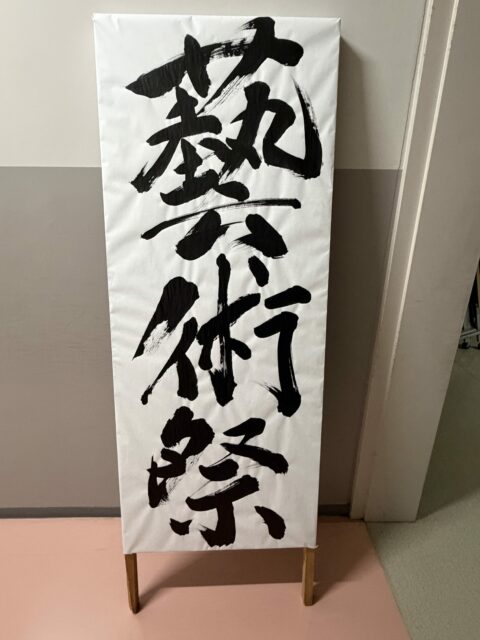 藝術祭